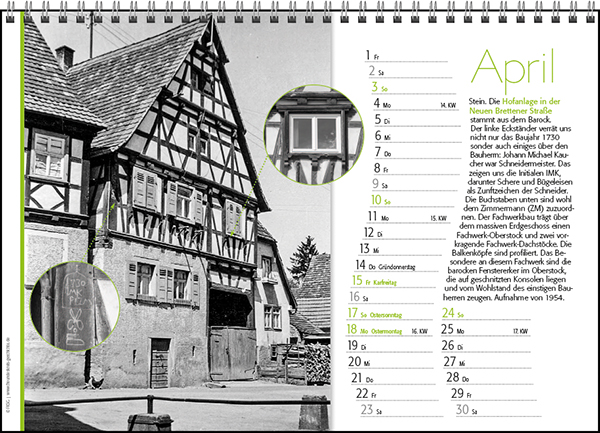 April
1 Fr
2 Sa
3 So
4 Mo 14. KW
5 Di
6 Mi
7 Do
8 Fr
9 Sa
10 So
11 Mo 15. KW
12 Di
13 Mi
14 Do Gründonnerstag
15 Fr Karfreitag
16 Sa
17 So Ostersonntag
18 Mo Ostermontag 16. KW
19 Di
20 Mi
21 Do
22 Fr
23 Sa
24 So
25 Mo 17. KW
26 Di
27 Mi
28 Do
29 Fr
30 Sa
Stein. Die Hofanlage in der
Neuen Brettener Straße
stammt aus dem Barock.
Der linke Eckständer verrät uns
nicht nur das Baujahr 1730
sonder auch einiges über den
Bauherrn: Johann Michael Kau-
cher war Schneidermeister. Das
zeigen uns die Initialen IMK,
darunter Schere und Bügeleisen
als Zunftzeichen der Schneider.
Die Buchstaben unten sind wohl
dem Zimmermann (ZM) zuzuord-
nen. Der Fachwerkbau trägt über
dem massiven Erdgeschoss einen
Fachwerk-Oberstock und zwei vor-
kragende Fachwerk-Dachstöcke. Die
Balkenköpfe sind profiliert. Das Be-
sondere an diesem Fachwerk sind die
barocken Fenstererker im Oberstock,
die auf geschnitzten Konsolen liegen
und vom Wohlstand des einstigen Bau-
herren zeugen. Aufnahme von 1954.